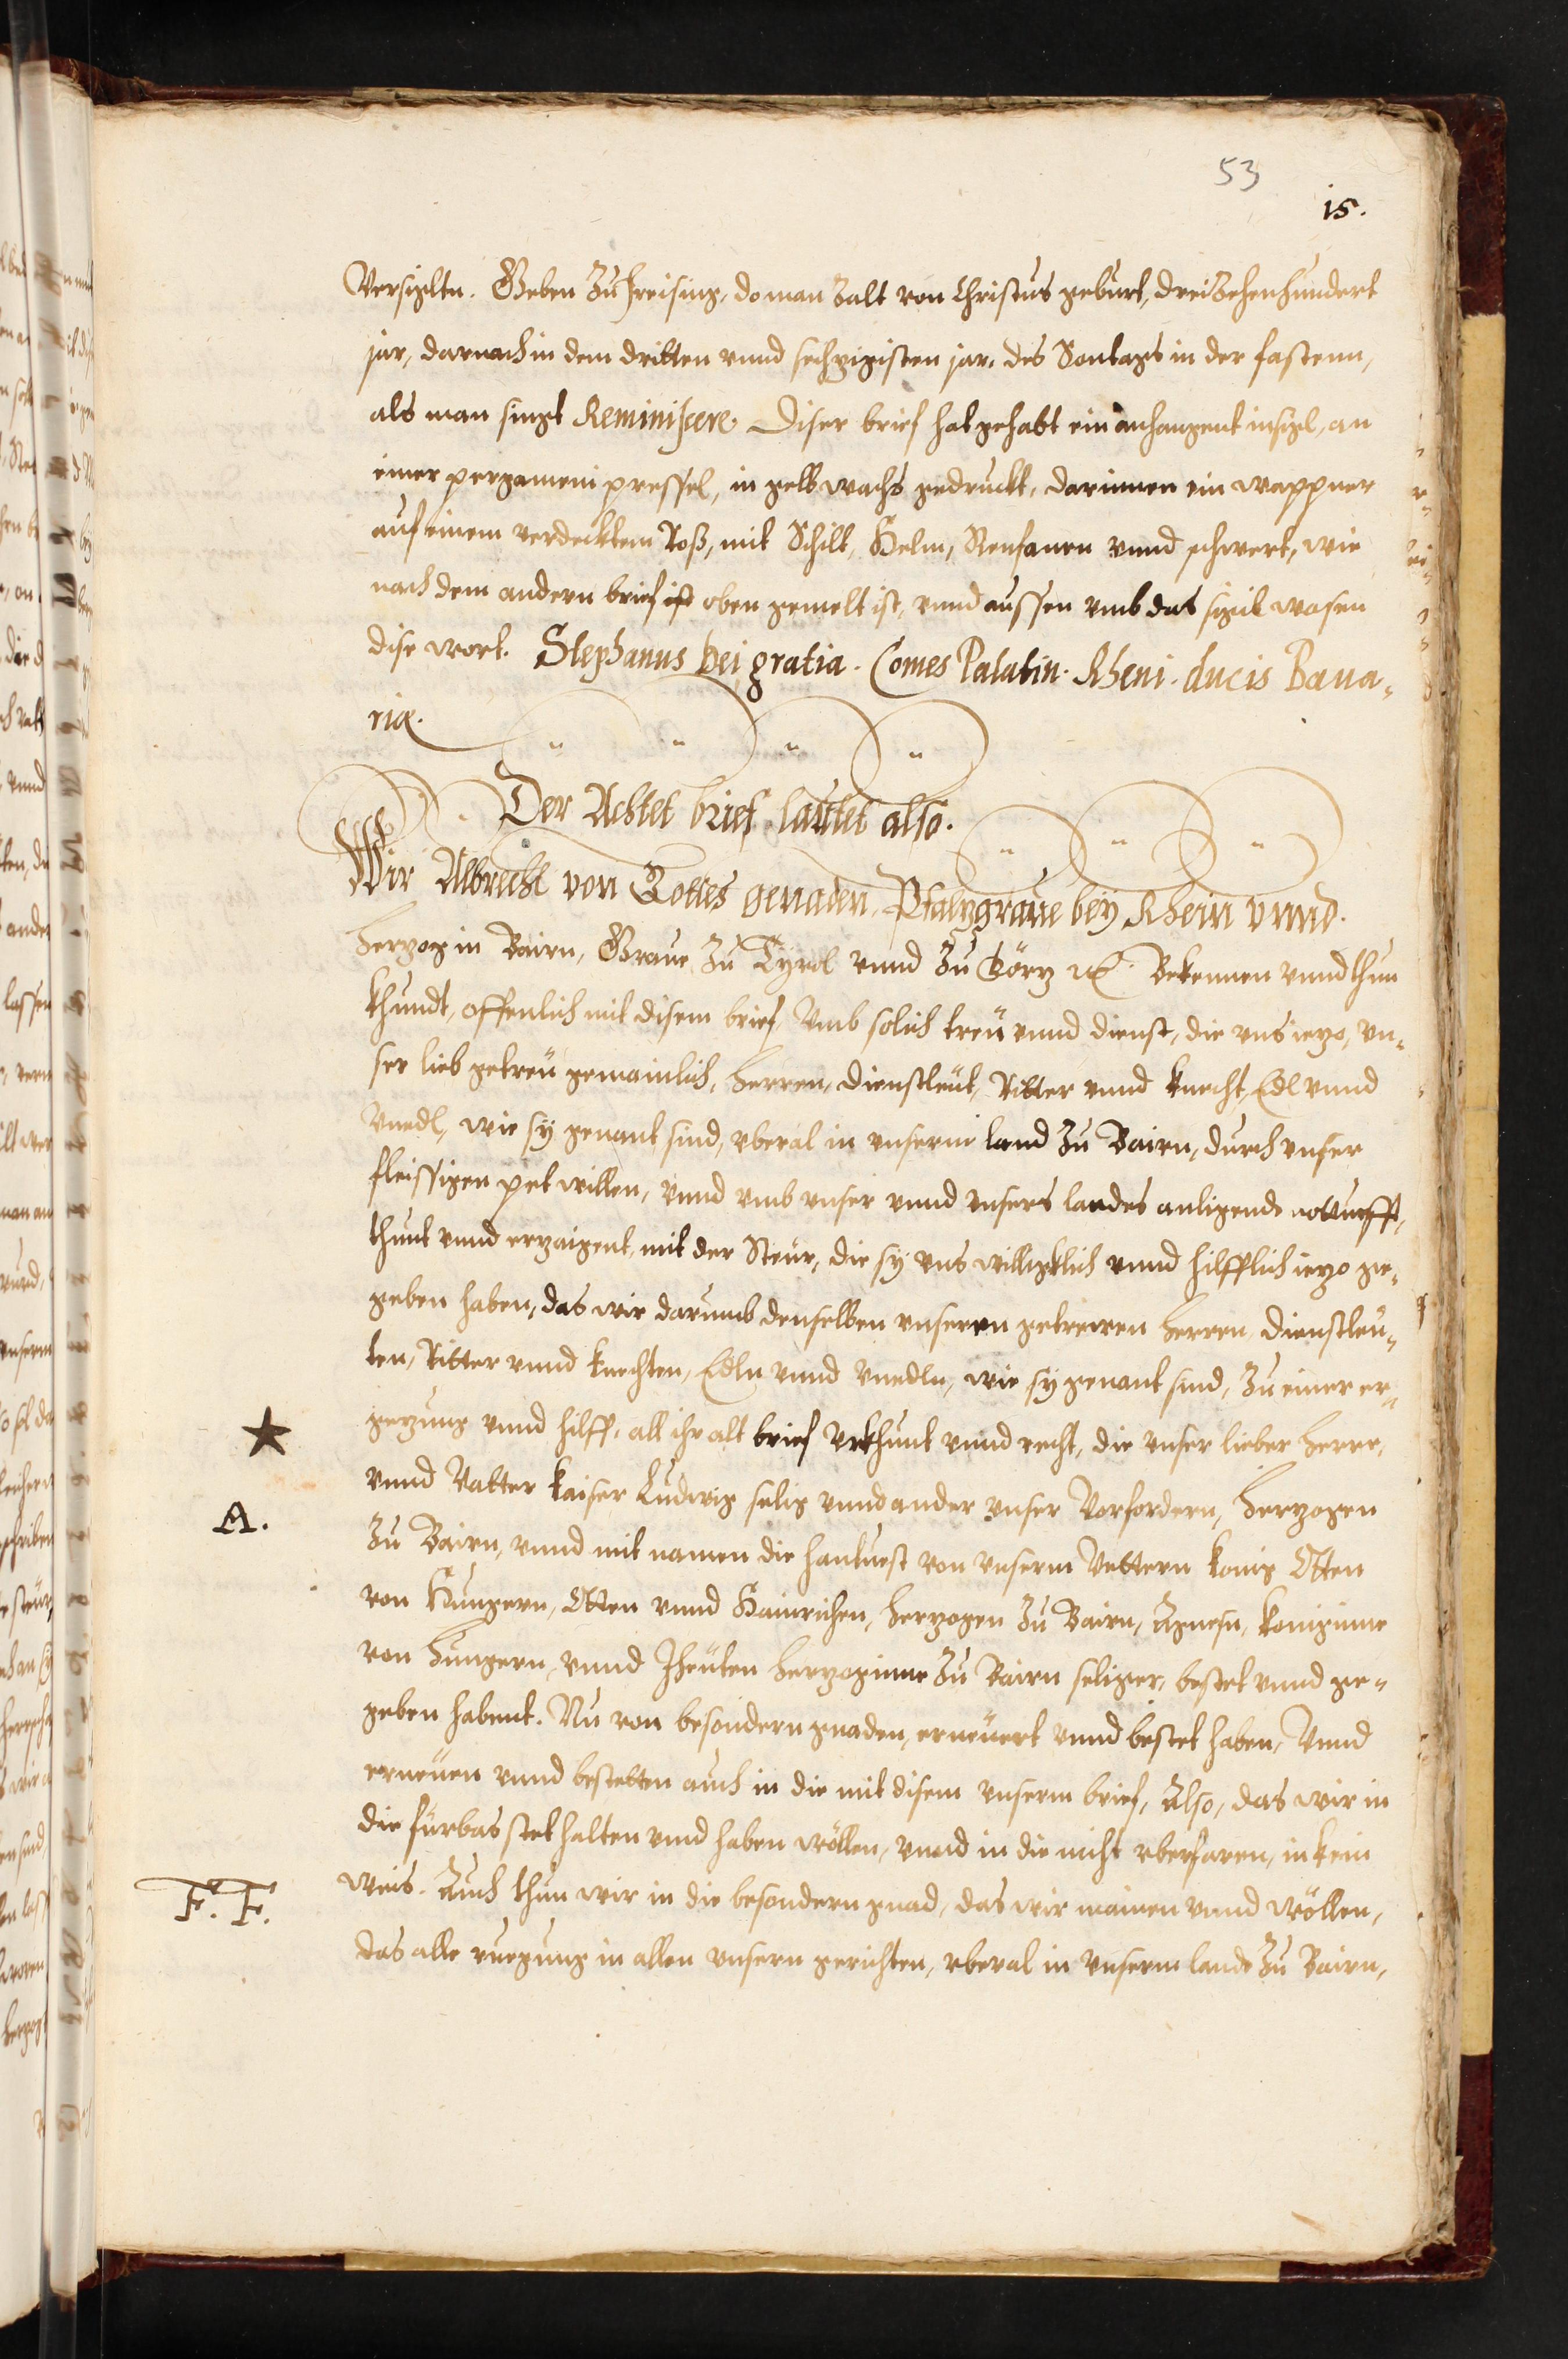 53
15.
Versigltn. Geben zu freising, do man zalt von Christus geburt, dreizehenhundert
jar, darnach in dem dritten vnnd sechzigisten jar, des Sontags in der fastenn,
als man singt Reminiscere. Diser brief hat gehabt ein anhangent insigl, an
einer pergameni pressel, in gelb wachs gedruckt, darinnen ein wappner
auf einem verdecktem Roß, mit Schilt, Helm, Renfanen vnnd schwert, wie
nach dem andern brief ist oben gemelt ist, vnnd aussen vmb das sigil wasen
dise wort. Stephanus Dei gratia. Comes Palatin. Rheni. ducis Baua-
riæ.
Der Achtet brief lautet also.
Wir Albrecht von Gottes genaden, Pfalzgraue bey Rhein vnnd
herzog in Bairn, Graue zu Tyrol vnnd zu Görz etc. Bekennen vnnd thun
khundt, offenlich mit disem brief, Vmb solich treu vnnd dienst, die vns iezo, vn-
ser lieb getreu gemainlich, herren, dienstleut, Ritter vnnd knecht, Edl vnnd
Vnedl, wie sy genant sind, vberal in vnserm land zu Bairn, durch vnser
fleissigen pet willen, vnnd vmb vnser vnnd vnsers landes anligende notturfft,
thunt vnnd erzaigent, mit der Steur, die sy vns willigklich vnnd hilfflich iezo ge-
geben haben, das wir darumb denselben vnseren getreuen herren, dienstleu-
ten, Ritter vnnd knechten, Edln vnnd vnedln, wie sy genant sind, zu einer er-
gezung vnnd hilff, all ihr alt brief vrkhunt vnnd recht, die vnser lieber herre,
vnnd Vatter kaiser Ludwig selig vnnd ander vnser Vorfordern, herzogen
A.
zu Bairn, vnnd mit namen die hantuest von vnserm Vettern konig Otten
von Hungern, Otten vnnd Hainrichen, herzogen zu Bairn, Agnesn, koniginne
von Hungern, vnnd Jheuten herzoginne zu Bairn seliger, bestet vnnd ge-
geben habent. Nu von besondern gnaden, erneuert vnnd bestet haben, Vnnd
erneuen vnnd bestetten auch in die mit disem vnserm brief, Also, das wir in
die fürbas stet halten vnnd haben wöllen, vnnd in die nicht vberfaren, in kein
F. F.
weis. Auch thun wir in die besondern gnad, das wir mainen vnnd wöllen,
das alle ruegung in allen vnsern gerichten, vberal in vnserm lande zu Bairn,